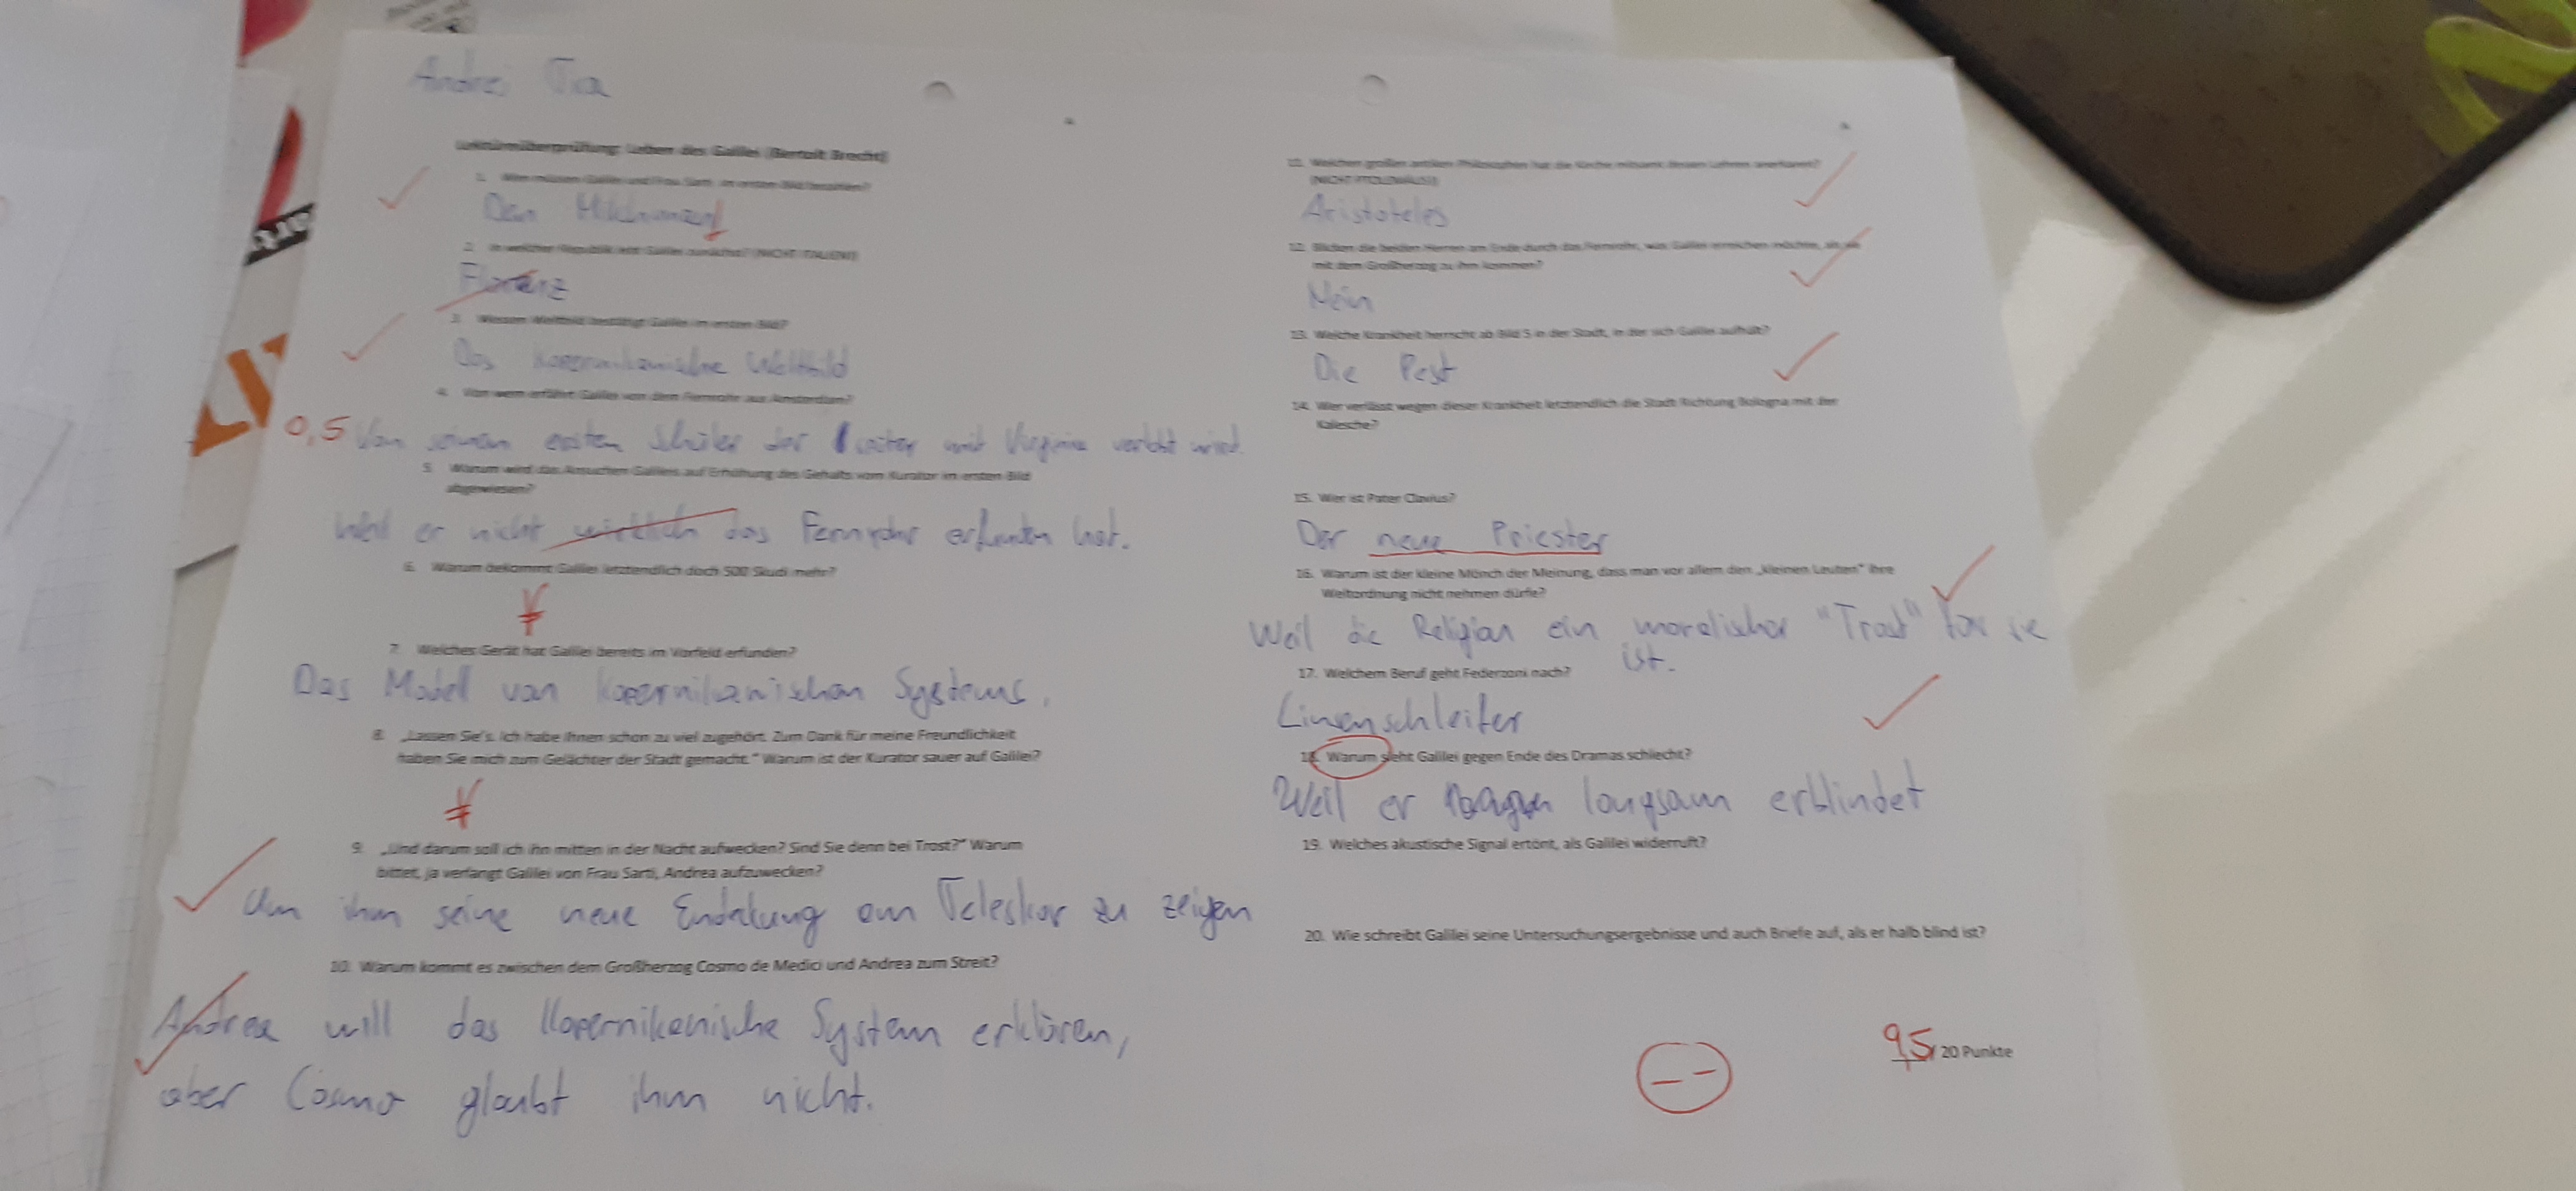 Andrei
Lektüreüberprüfung: Leben des Galilei (Bertolt Brecht)
1. Wen müssen Galilei und Frau Sarti im ersten Bild bezahlen?
Den Milchmann
2. In welcher Republik lebt Galilei zunächst? (NICHT ITALIEN!)
Florenz
3. Wessen Weltbild bestätigt Galilei im ersten Bild?
Das kopernikanische Weltbild
4. Von wem erfährt Galilei von dem Fernrohr aus Amsterdam?
0,5 Von seinem ersten Schüler der später mit Virginia verlobt wird.
5. Warum wird das Ansuchen Galileis auf Erhöhung des Gehalts vom Kurator im ersten Bild
abgewiesen?
Weil er nicht wirklich das Fernrohr erfunden hat.
6. Warum bekommt Galilei letztendlich doch 500 Skudi mehr?
7. Welches Gerät hat Galilei bereits im Vorfeld erfunden?
Das Modell von kopernikanischen Systems.
8. „Lassen Sie's. Ich habe Ihnen schon zu viel zugehört. Zum Dank für meine Freundlichkeit
haben Sie mich zum Gelächter der Stadt gemacht." Warum ist der Kurator sauer auf Galilei?
9. „Und darum soll ich ihn mitten in der Nacht aufwecken? Sind Sie denn bei Trost?" Warum
bittet, ja verlangt Galilei von Frau Sarti, Andrea aufzuwecken?
Um ihm seine neue Endekung am Teleskop zu zeigen
10. Warum kommt es zwischen dem Großherzog Cosmo de Medici und Andrea zum Streit?
Andrea will das Kopernikanische System erklären,
aber Cosmo glaubt ihm nicht.
11. Welchen großen antiken Philosophen hat die Kirche mitsamt dessen Lehren anerkannt?
(NICHT PTOLEMÄUS!)
Aristoteles
12. Blicken die beiden Herren am Ende durch das Fernrohr, was Galilei erreichen möchte, als sie
mit dem Großherzog zu ihm kommen?
Nein
13. Welche Krankheit herrscht ab Bild 5 in der Stadt, in der sich Galilei aufhält?
Die Pest
14. Wer verlässt wegen dieser Krankheit letztendlich die Stadt Richtung Bologna mit der
Kalesche?
15. Wer ist Pater Clavius?
Der neue Priester
16. Warum ist der kleine Mönch der Meinung, dass man vor allem den „kleinen Leuten" ihre
Weltordnung nicht nehmen dürfe?
Weil die Religion ein moralischer "Trost" für sie
ist.
17. Welchem Beruf geht Federzoni nach?
Linsenschleifer
18. Warum sieht Galilei gegen Ende des Dramas schlecht?
Weil er langsam erblindet
19. Welches akustische Signal ertönt, als Galilei widerruft?
20. Wie schreibt Galilei seine Untersuchungsergebnisse und auch Briefe auf, als er halb blind ist?
9,5 / 20 Punkte